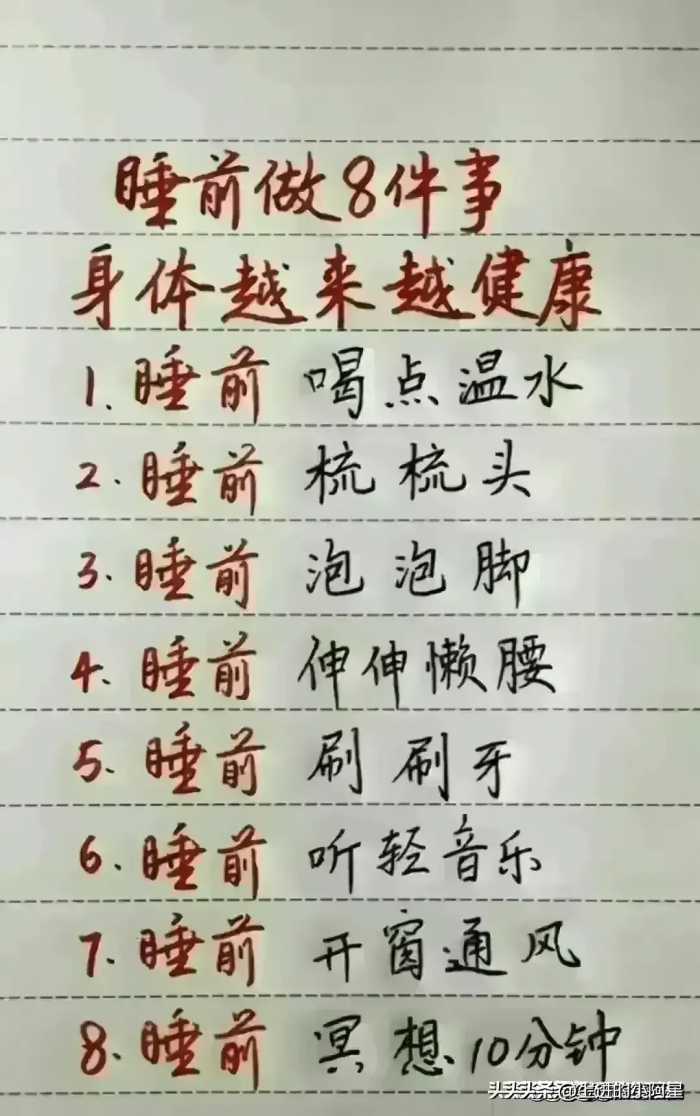 睡前做8件事
身体越来越健康
1、睡前 喝点温水
2.睡前 梳梳头
3.睡前 泡泡脚
4.睡前 伸伸懒腰
5.睡前 刷刷牙
6.睡前 听轻音乐
7.睡前 开窗通风
8.睡前 冥想10分钟